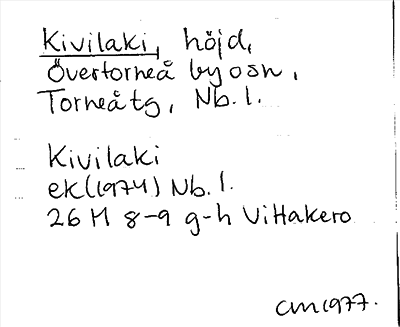 Kivilaki, höjd,
Övertorneå by osn,
Torneåtg, Nb. l.
Kivilaki
ek (1974) Nb. l.
26 M 8-9 g-h Vittakero
CM1977.